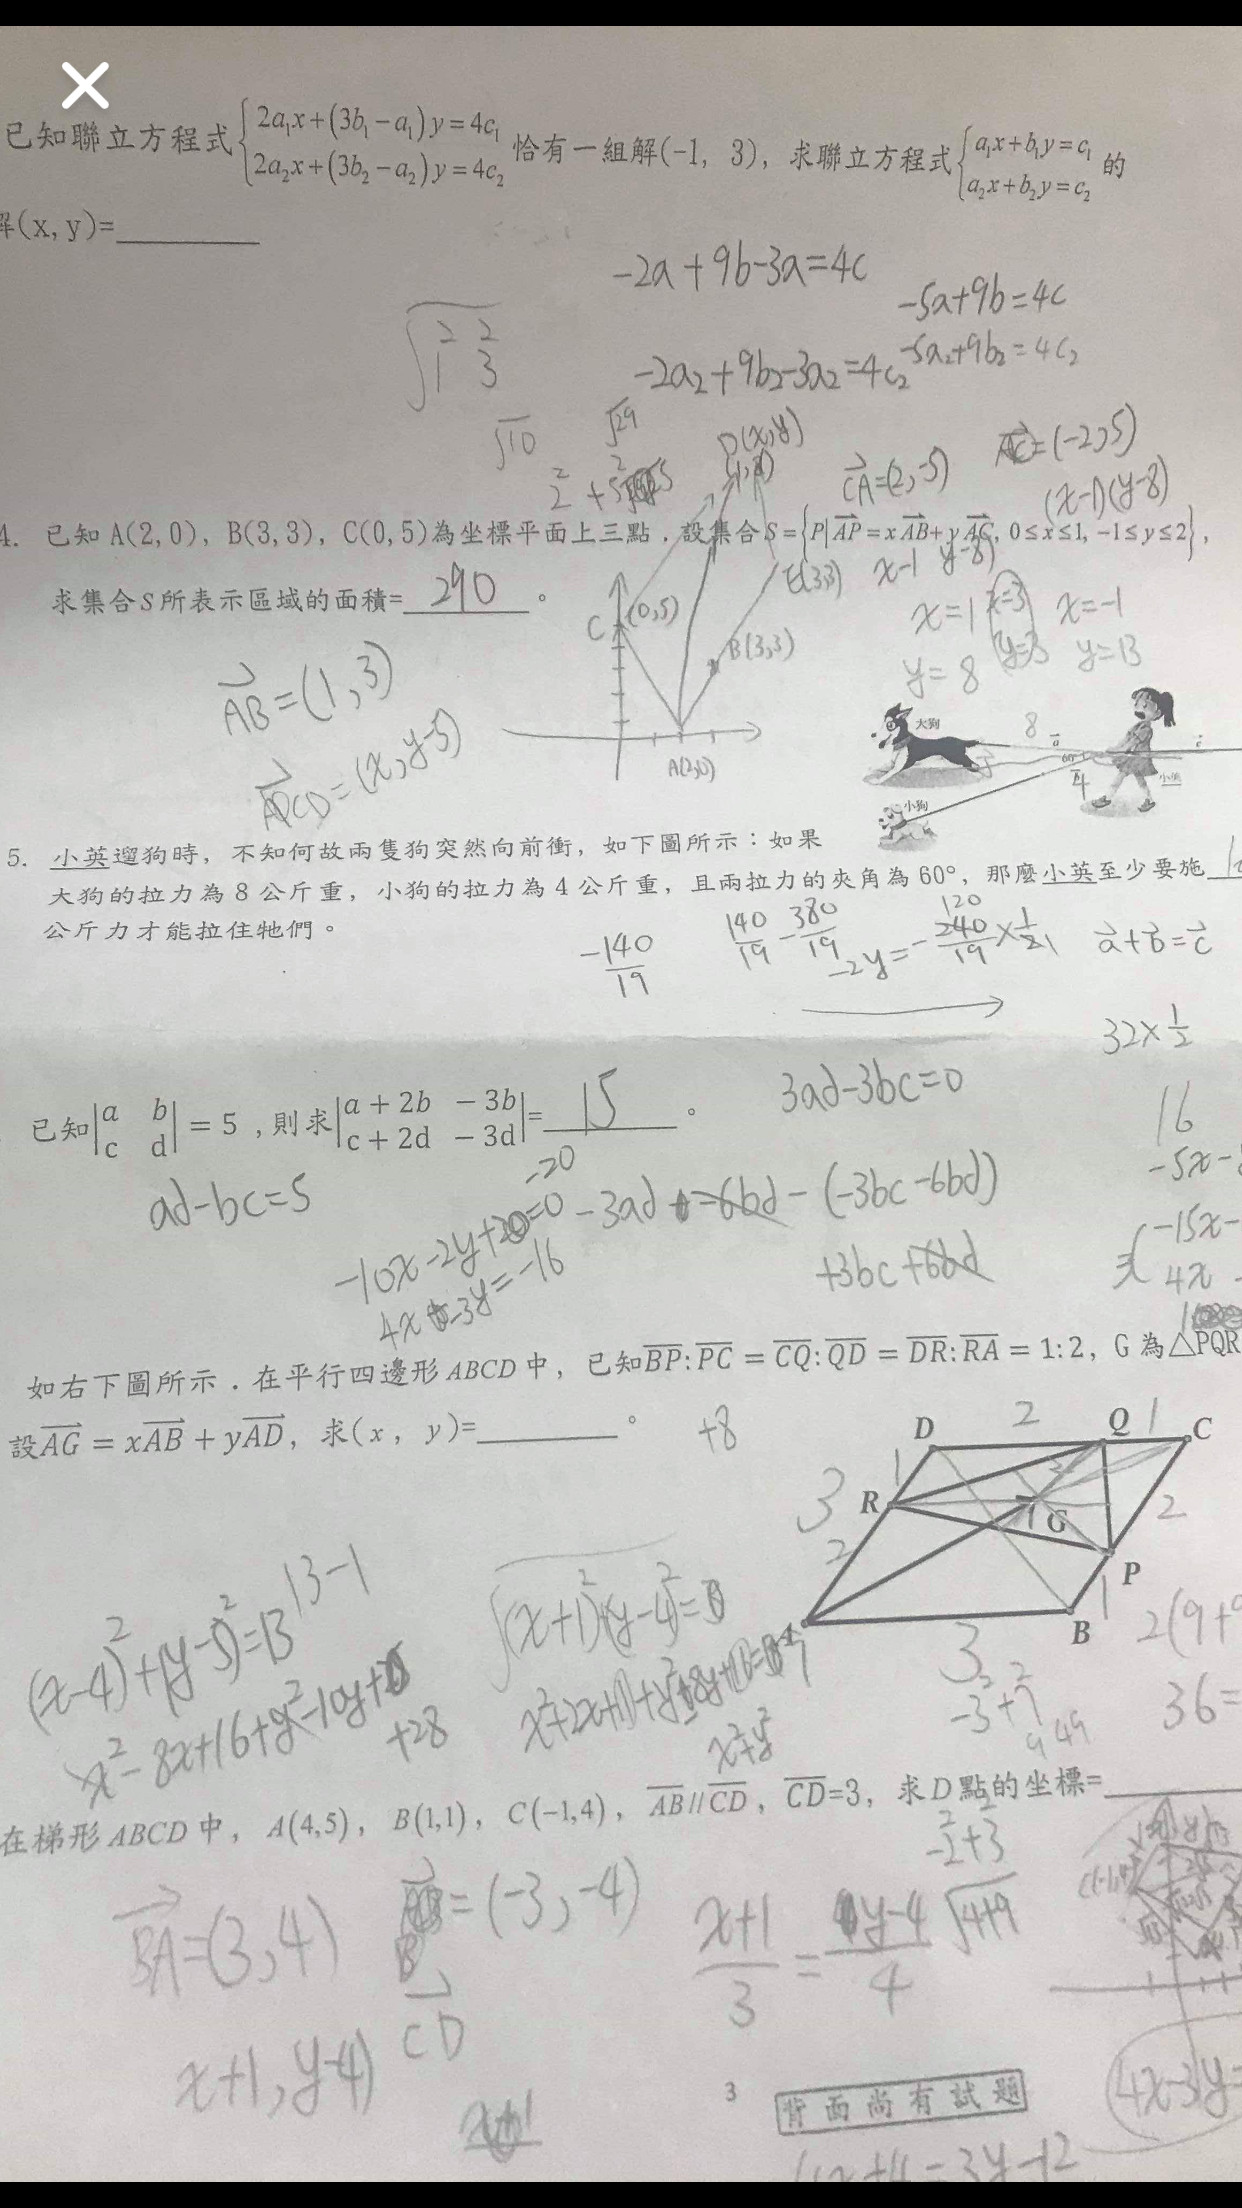 已知聯立方程式{2a₁x+(3b₁−a₁)y=4c₁ 2a₂x+(3b₂−a₂)y=4c₂ 恰有一組解(-1, 3), 求聯立方程式{a₁x+b₁y=c₁ a₂x+b₂y=c₂ 的
解(x, y)=
-2a+9b-3a=4c
-5a+9b=4c
-2a₂+9b₂-3a₂=4c₂
-5a₂+9b₂=4c₂
√10
√29
D(x,y)
CA=(2,-5)
AC=(-2,5)
(x-1)(y-8)
4. 已知 A(2,0), B(3,3), C(0,5)為坐標平面上三點.設集合S={P|AP=xAB+yAC, 0≤x≤1, −1≤y≤2},
求集合S所表示區域的面積= 290 。
x-1 y-8)
C (0,5)
B(3,3)
A(2,0)
x=1 x=3 x=-1
y=8 y=3 y=13
AB=(1,3)
CD=(x,y-5)
大狗
8
60°
4
小狗
小英
5. 小英遛狗時, 不知何故兩隻狗突然向前衝, 如下圖所示:如果
大狗的拉力為 8 公斤重, 小狗的拉力為 4 公斤重, 且兩拉力的夾角為 60°, 那麼小英至少要施
公斤力才能拉住牠們。
-140/19
140/19 - 380/19
-2y=-240/19×1/2
120
a+b=c
32×1/2
16
3ad-3bc=0
已知|a b c d|= 5 ,則求|a + 2b − 3b c + 2d − 3d|= 15 。
ad-bc=5
-20
-3ad -6bd - (-3bc-6bd)
+3bc+6bd
-10x-2y+20=0
4x-3y=-16
-5x-
-15x-
4x
如右下圖所示.在平行四邊形ABCD中, 已知BP:PC = CQ:QD = DR:RA = 1:2, G 為△PQR
設AG = xAB + yAD, 求(x , y)= 。
+8
D 2 Q 1 C
1
3 R
G 2
2
P
1
A B
3
(x-4)²+(y-5)²=13
13-1
x²-8x+16+y²-10y+
+28
x²+y²
-3²+7²
9 49
2(9+9
36=
在梯形ABCD中, A(4,5), B(1,1), C(−1,4), AB//CD, CD=3, 求D點的坐標=
-2²+3²
√4+9
BA=(3,4)
=(-3,-4)
CD
x+1/3 = y-4/4
x+1, y-4)
4x-3y=
3
背面尚有試題
4x+4=3y-12